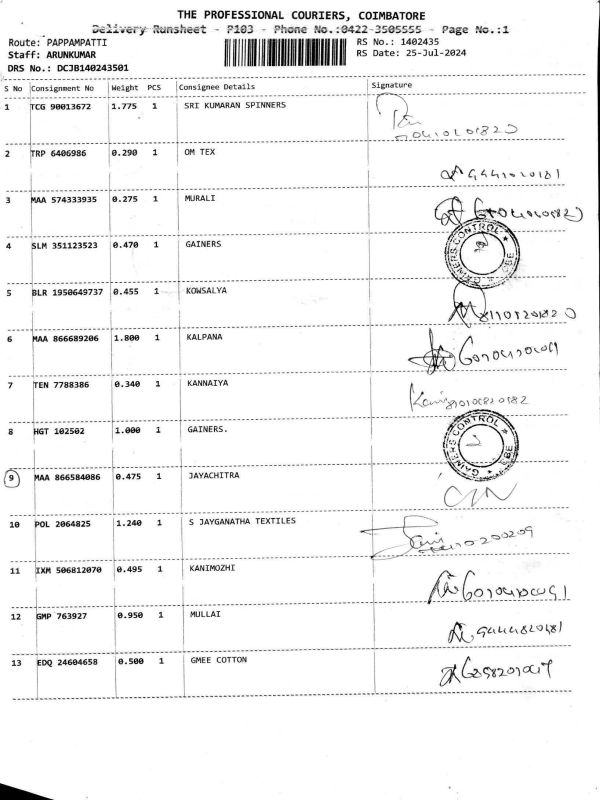 THE PROFESSIONAL COURIERS, COIMBATORE
Delivery Runsheet - P103 - Phone No.:0422-3505555 - Page No.:1
Route: PAPPAMPATTI
RS No.: 1402435
Staff: ARUNKUMAR
RS Date: 25-Jul-2024
DRS No.: DCJB140243501
S No Consignment No Weight PCS Consignee Details Signature
1 TCG 90013672 1.775 1 SRI KUMARAN SPINNERS
2 TRP 6406986 0.290 1 OM TEX
3 MAA 574333935 0.275 1 MURALI
4 SLM 351123523 0.470 1 GAINERS
GAINERS CONTROL CBE
5 BLR 1950649737 0.455 1 KOWSALYA
6 MAA 866689206 1.800 1 KALPANA
7 TEN 7788386 0.340 1 KANNAIYA
8 HGT 102502 1.000 1 GAINERS.
GAINERS CONTROL CBE
9 MAA 866584086 0.475 1 JAYACHITRA
10 POL 2064825 1.240 1 S JAYGANATHA TEXTILES
11 IXM 506812070 0.495 1 KANIMOZHI
12 GMP 763927 0.950 1 MULLAI
13 EDQ 24604658 0.500 1 GMEE COTTON